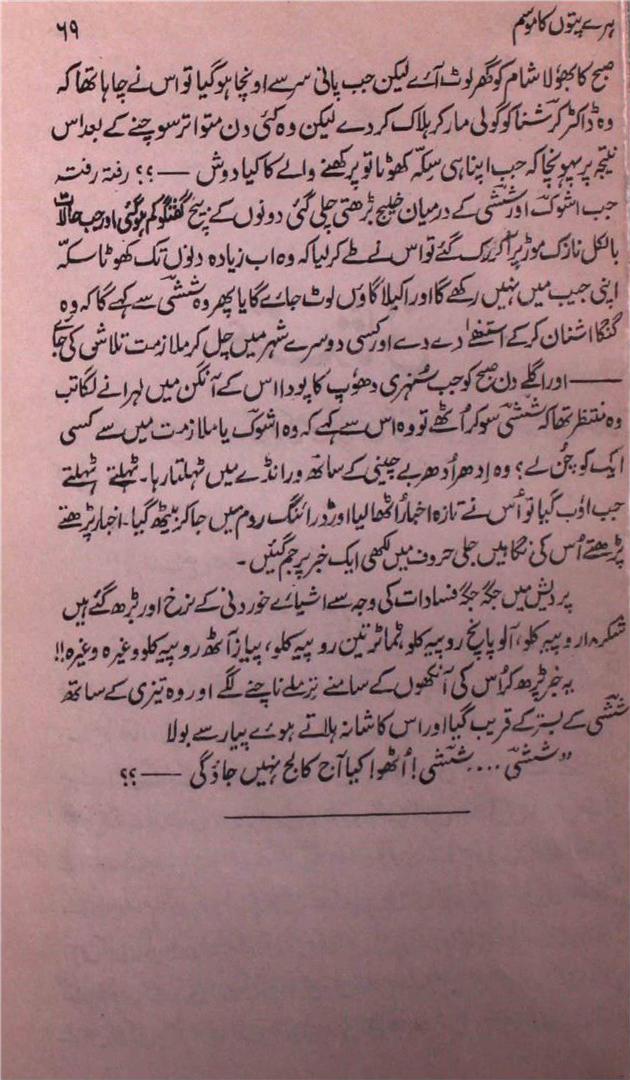 ہرے پتوں کا موسم
۶۹
صبح کا بھولا شام کو گھر لوٹ آئے لیکن جب پانی سر سے اونچا ہوگیا تو اس نے چاہا تھا کہ
وہ ڈاکٹر کرشنا کو گولی مار کر ہلاک کردے لیکن وہ کئی دن متواتر سوچنے کے بعد اس
نتیجہ پر پہونچا کہ جب اپنا ہی سکہ کھوٹا تو پرکھنے والے کا کیا دوش —؟؟ رفتہ رفتہ
جب اشوک اور ششی کے درمیان خلیج بڑھتی چلی گئی دونوں کے بیچ گفتگو کم ہوگئی اور جب حالات
بالکل نازک موڑ پر آکر رک گئے تو اس نے طے کرلیا کہ وہ اب زیادہ دنوں تک کھوٹا سکہ
اپنی جیب میں نہیں رکھے گا اور اکیلا گاؤں لوٹ جائے گا یا پھر وہ ششی سے کہے گا کہ وہ
گنگا اشنان کرکے استعفےٰ دے دے اور کسی دوسرے شہر میں چل کر ملازمت تلاش کی جائے
—— اور اگلے دن صبح کو جب سُنہری دھوپ کا پودا اس کے آنگن میں لہرانے لگا تب
وہ منتظر تھا کہ ششی سو کر اُٹھے تو وہ اس سے کہے کہ وہ اشوک یا ملازمت میں سے کسی
ایک کو چُن لے؟ وہ اِدھر اُدھر بے چینی کے ساتھ ورانڈے میں ٹہلتا رہا۔ ٹہلتے ٹہلتے
جب اوب گیا تو اُس نے تازہ اخبار اُٹھا لیا اور ڈرائنگ روم میں جاکر بیٹھ گیا۔ اخبار پڑھتے
پڑھتے اُس کی نگاہیں جلی حروف میں لکھی ایک خبر پر جم گئیں۔
پردیش میں جگہ جگہ فسادات کی وجہ سے اشیائے خوردنی کے نرخ اور بڑھ گئے ہیں
شکر ۱۸ روپیہ کلو، آلو پانچ روپیہ کلو، ٹماٹر تین روپیہ کلو، پیاز آٹھ روپیہ کلو وغیرہ وغیرہ!!
یہ خبر پڑھ کر اُس کی آنکھوں کے سامنے ترملے ناچنے لگے اور وہ تیزی کے ساتھ
ششی کے بستر کے قریب گیا اور اس کا شانہ ہلاتے ہوئے پیار سے بولا
"ششی .... ششی! اُٹھو! کیا آج کالج نہیں جاؤگی —؟؟